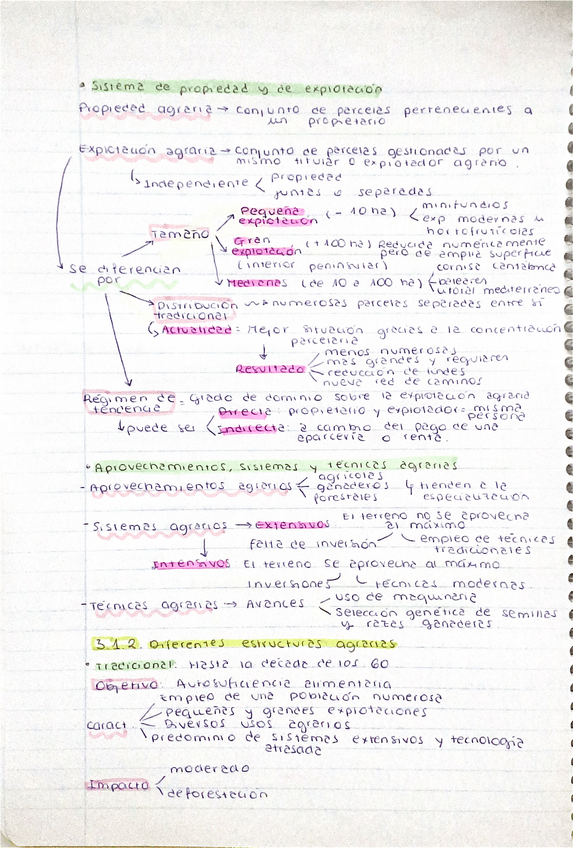 • Sistema de propiedad y de explotación
Propiedad agraria → conjunto de parcelas pertenecientes a
un propietario
Explotación agraria → conjunto de parcelas gestionadas por un
mismo titular o explotador agrario.
↳ Independiente < propiedad
juntas o separadas
Se diferencian por
Tamaño
Pequeña explotación (- 10 ha) < minifundios
exp modernas u hortofrutícolas
Gran explotación (+ 100 ha) Reducida numéricamente
pero de amplia superficie
(interior peninsular)
Medianas (de 10 a 100 ha) cornisa cantábrica
baleares
litoral mediterráneo
Distribución tradicional → numerosas parcelas separadas entre sí
↳ Actualidad: Mejor situación gracias a la concentración
parcelaria
↓
Resultado
menos numerosas
mas grandes y regulares
reducción de lindes
nueva red de caminos
Régimen de tendencia = Grado de dominio sobre la explotación agraria
↓ puede ser < Directa: propietario y explotador = misma
persona
Indirecta: a cambio del pago de una
aparcería o renta.
• Aprovechamientos, sistemas y técnicas agrarias
- Aprovechamientos agrarios < agrícolas
ganaderos
forestales
↳ tienden a la
especialización
- Sistemas agrarios → extensivos El terreno no se aprovecha
al máximo
falta de inversión empleo de técnicas
tradicionales
↓
Intensivos El terreno se aprovecha al máximo
Inversiones técnicas modernas.
- Técnicas agrarias → Avances < uso de maquinaria
Selección genética de semillas
y razas ganaderas.
3.1.2. Diferentes estructuras agrarias
• Tradicional: Hasta la década de los 60
Objetivo: Autosuficiencia alimentaria
caract.
Empleo de una población numerosa
pequeñas y grandes explotaciones
Diversos usos agrarios
predominio de sistemas extensivos y tecnología
atrasada
Impacto < moderado
deforestación